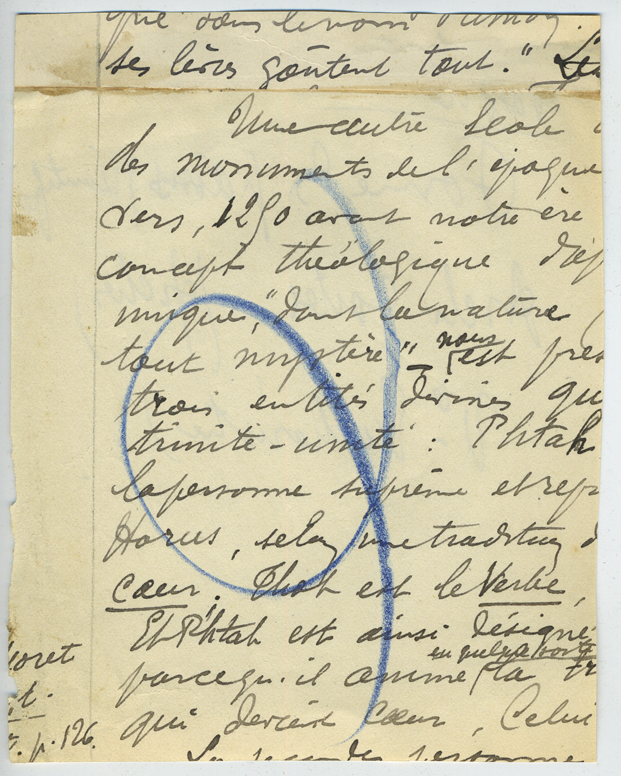 que dans
ses lèvres goûtent tout."
Une autre École
des monuments de l'époque
vers, 1250 avant notre ère
concept théologique
unique, "dont la nature
tout mystère" nous est
trois entités divines qu
trinité-unité : Phtah
la personne suprême et rep
Horus, selon une tradition d
cœur. Thot est le Verbe,
Et Phtah est ainsi désigné
en quelque sorte
parcequ'il anime la tr
qui devient Cœur, Celui
La seconde personne
oret
t.
p. 126.